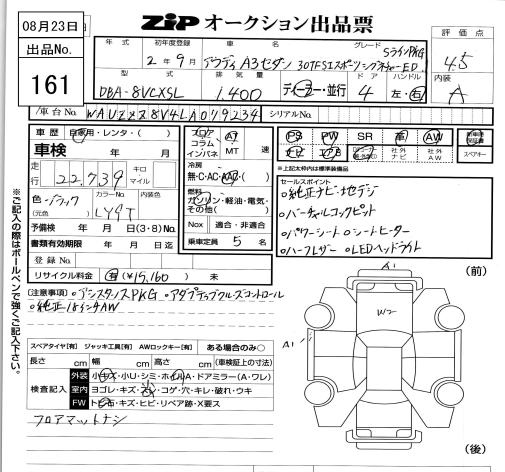 08月23日
出品No.
161
ZIP オークション出品票
評価点
4.5
内装
A
年式 初年度登録 車名 グレード
2年9月 アウディ A3セダン 30TFSIスポーツ SラインPKG ED
型式 排気量 ドア ハンドル
DBA-8VCXSL 1,400 デーラー・並行 4 左・右
車台No. WAUZZZ8V4LA079234 シリアルNo.
車歴 自家用・レンタ・( )
車検 年 月
走行 22,739 キロ マイル
色・ブラック カラーNo. 内装色
(元色) LY9T
予備検 年 月(3・8)No.
書類有効期限 年 月 日迄
登録No.
リサイクル料金 有 ¥15,160 未
フロア コラム インパネ
AT MT 速
冷房 無・C・AC・AAC・( )
燃料 ガソリン・軽油・電気・その他( )
Nox 適合・非適合
乗車定員 5 名
PS PW SR 革 AW
社外ナビ 社外AW スペアキー
*上記太枠内は標準装備品
セールスポイント
○純正ナビ・地デジ
○バーチャルコックピット
○パワーシート○シートヒーター
○ハーフレザー ○LEDヘッドライト
(注意事項)○アシスタンスPKG ○アダプティブクルーズコントロール
○純正18インチAW
※ご記入の際はボールペンで強くご記入下さい。
スペアタイヤ【有】 ジャッキ工具【有】 AWロックキー【有】 ある場合のみ○
長さ cm 幅 cm 高さ cm (車検証上の寸法)
検査記入
外装 小キズ・小リ・シミ・ホイルA・ドアミラー(A・ワレ)
室内 ヨゴレ・キズ・スレ・コゲ・穴・キレ・破れ・ウキ
FW トビ石・キズ・ヒビ・リペア跡・X要ス
フロアマットナシ
(前)
A1
W2
A1
(後)